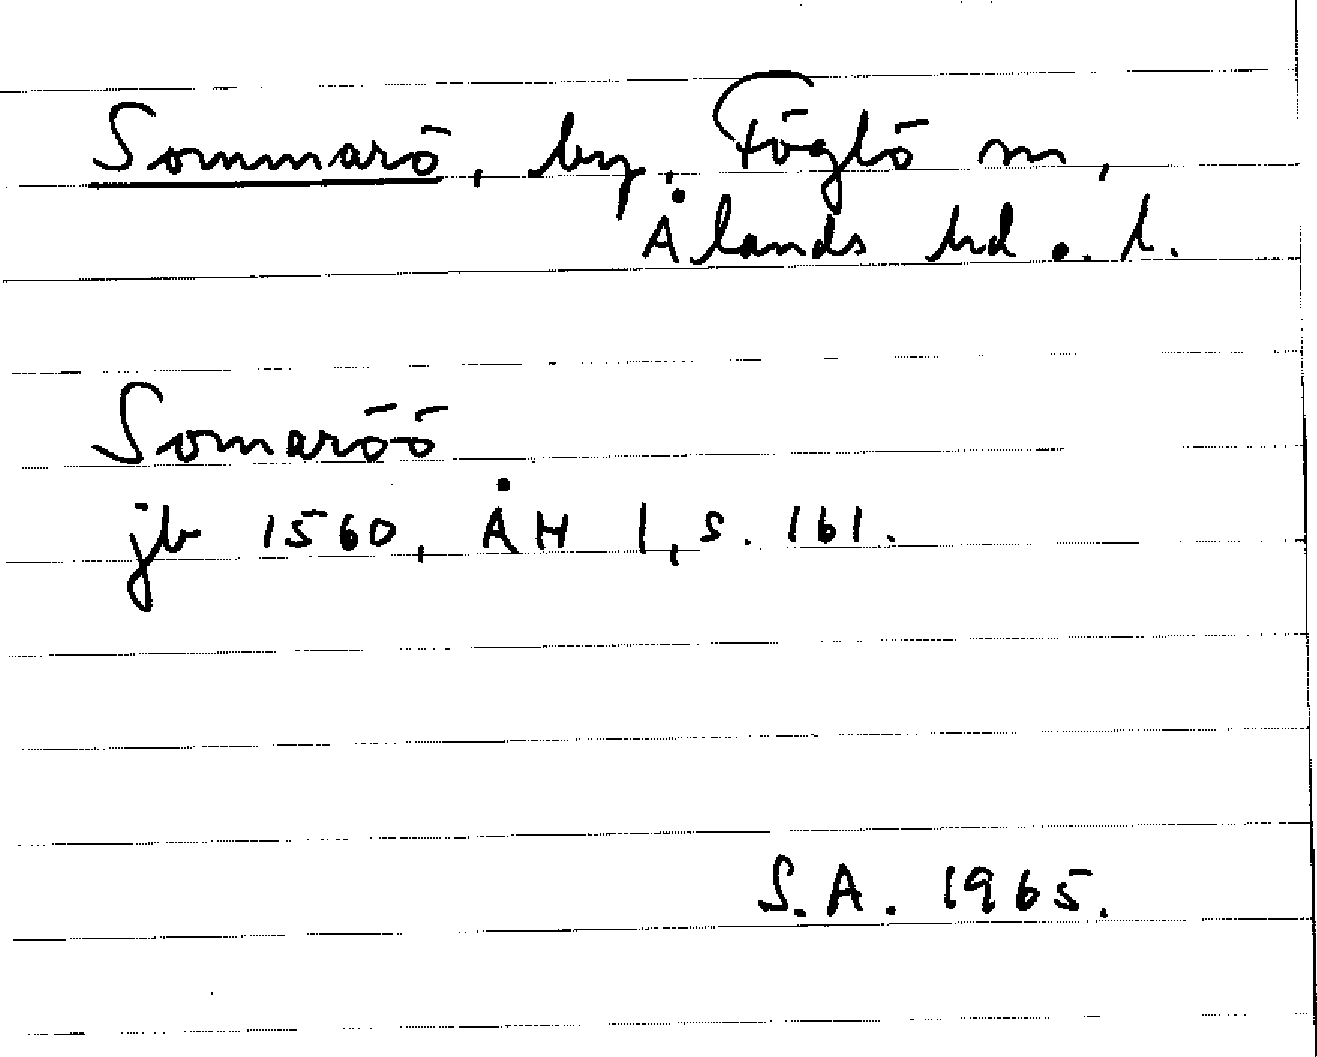 Sommarö, by, Föglö sn,
Ålands hd o. l.
Somaröö
jb 1560, ÅH 1, s. 161.
S.A. 1965.